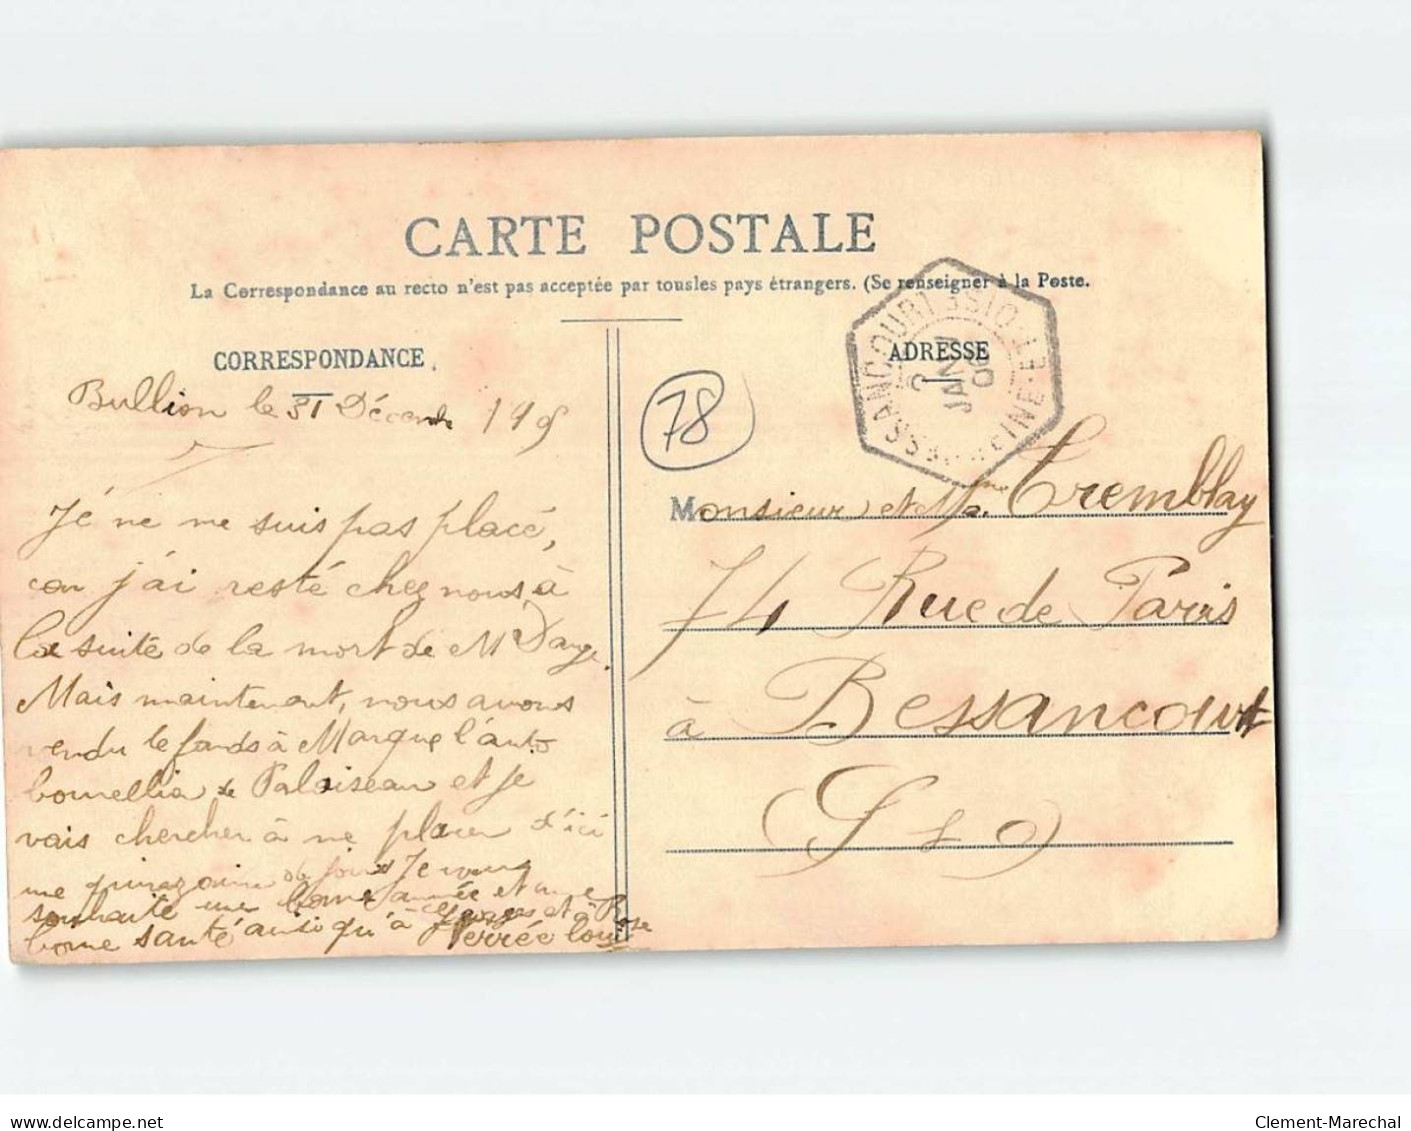 CARTE POSTALE
La Correspondance au recto n'est pas acceptée par tousles pays étrangers. (Se renseigner à la Poste.
CORRESPONDANCE
Bullion le 31 Décembre 1905
Je ne me suis pas placé,
car j'ai resté chez nous à
la suite de la mort de M
Mais maintenant, nous avons
vendu le fonds à Marque l'auto
de Palaiseau et je
vais chercher à me placer d'ici
une quinzaine de jours Je vous
souhaite une bonne année et une
bonne santé ainsi qu'à Georges et à Rose
78
BESSANCOURT
JANVI
06
SEINE-ET-OISE
ADRESSE
Monsieur et Mme Tremblay
74 Rue de Paris
à Bessancourt
(S & O)
www.delcampe.net
Clement-Marechal